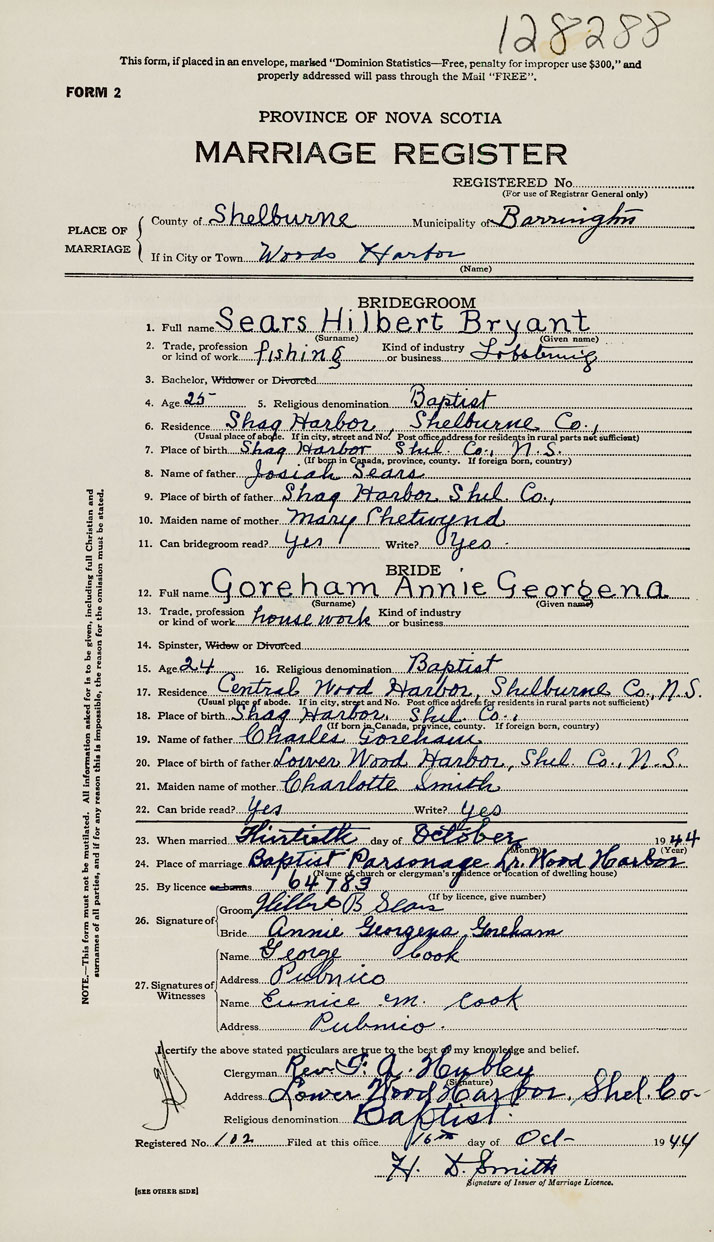 128288
This form, if placed in an envelope, marked "Dominion Statistics—Free, penalty for improper use $300," and
properly addressed will pass through the Mail "FREE".
FORM 2
PROVINCE OF NOVA SCOTIA
MARRIAGE REGISTER
REGISTERED No.
(For use of Registrar General only)
PLACE OF MARRIAGE
County of Shelburne Municipality of Barrington
If in City or Town Woods Harbor
(Name)
BRIDEGROOM
1. Full name Sears Hilbert Bryant
(Surname) (Given name)
2. Trade, profession or kind of work fishing Kind of industry or business Lobstering
3. Bachelor, Widower or Divorced
4. Age 25 5. Religious denomination Baptist
6. Residence Shag Harbor, Shelburne Co.,
(Usual place of abode. If in city, street and No. Post office address for residents in rural parts not sufficient)
7. Place of birth Shag Harbor Shel Co., N.S.
(If born in Canada, province, county. If foreign born, country)
8. Name of father Josiah Sears
9. Place of birth of father Shag Harbor Shel Co.,
10. Maiden name of mother Mary Chetwynd
11. Can bridegroom read? Yes Write? Yes
BRIDE
12. Full name Goreham Annie Georgena
(Surname) (Given name)
13. Trade, profession or kind of work house work Kind of industry or business
14. Spinster, Widow or Divorced
15. Age 24 16. Religious denomination Baptist
17. Residence Central Wood Harbor, Shelburne Co., N.S.
(Usual place of abode. If in city, street and No. Post office address for residents in rural parts not sufficient)
18. Place of birth Shag Harbor. Shel Co.,
(If born in Canada, province, county. If foreign born, country)
19. Name of father Charles Goreham
20. Place of birth of father Lower Wood Harbor, Shel Co., N.S.
21. Maiden name of mother Charlotte Smith
22. Can bride read? Yes Write? Yes
23. When married Thirtieth day of October 1944
(Month) (Year)
24. Place of marriage Baptist Parsonage Lr. Wood Harbor
(Name of church or clergyman's residence or location of dwelling house)
25. By licence or banns 64783
(If by licence, give number)
26. Signature of
Groom Hilbert B Sears
Bride Annie Georgena Goreham
27. Signatures of Witnesses
Name George Cook
Address Pubnico
Name Eunice M. Cook
Address Pubnico.
I certify the above stated particulars are true to the best of my knowledge and belief.
Clergyman Rev. F. A. Hubley
(Signature)
Address Lower Wood Harbor, Shel. Co.
Religious denomination Baptist.
Registered No. 102 Filed at this office 16th day of Oct 1944
H. D. Smith
Signature of Issuer of Marriage Licence.
[SEE OTHER SIDE]
NOTE.—This form must not be mutilated. All information asked for is to be given, including full Christian and
surnames of all parties, and if for any reason this is impossible, the reason for the omission must be stated.